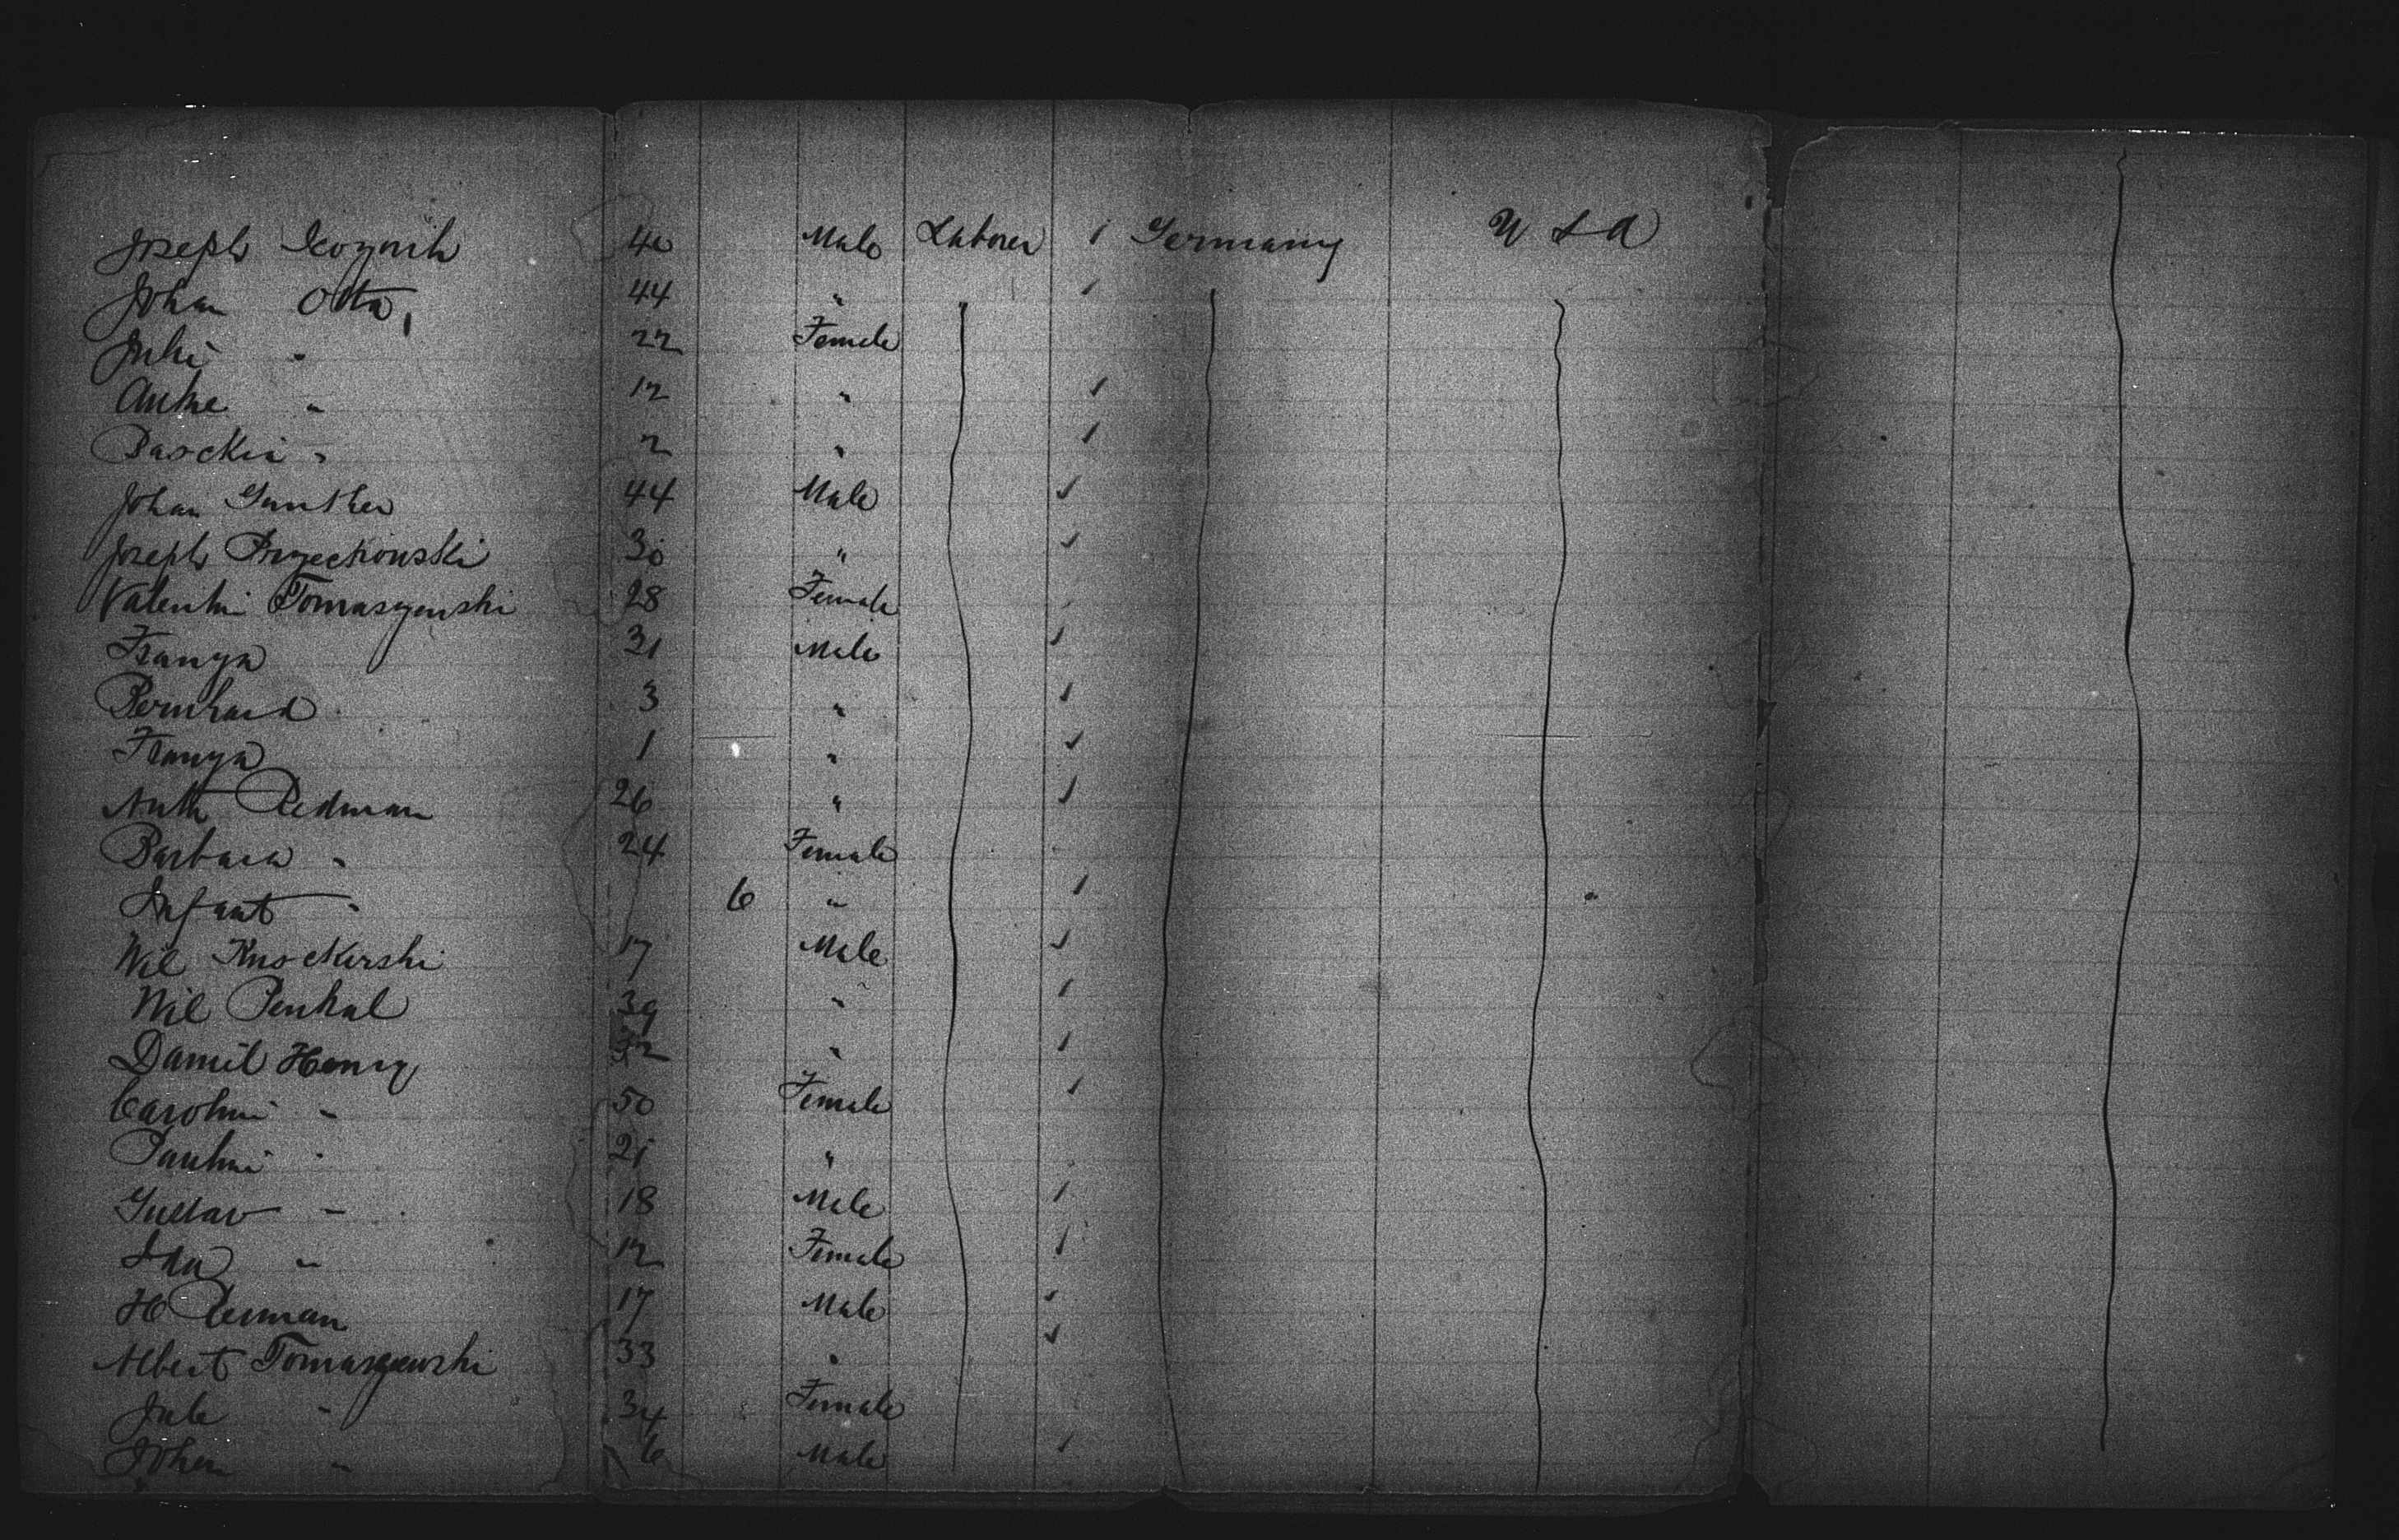 Joseph Kozmik 40 Male Laborer / Germany U S A
Johan Otta 44 " " /
Julii " 22 Female
Antne " 12 " /
Basckia " 2 " /
Johan Gunther 44 Male ✓
Joseph Przechowski 30 " ✓
Valentin Tomaszewski 28 Female
Franza 31 Male ✓
Bernhard 3 " /
Franza 1 " ✓
Anth Redman 26 " ✓
Barbara " 24 Female
Infant " 6 " /
Wil Knockirski 17 Male ✓
Wil Penkal 39 " /
Daniel Henry 32 " /
Carolini " 50 Female /
Paulini " 21 "
Gustav " 18 Male /
Ida " 12 Female /
H Perman 17 Male /
Albert Tomaszewski 33 " ✓
Jule " 34 Female
Johan " 6 Male /